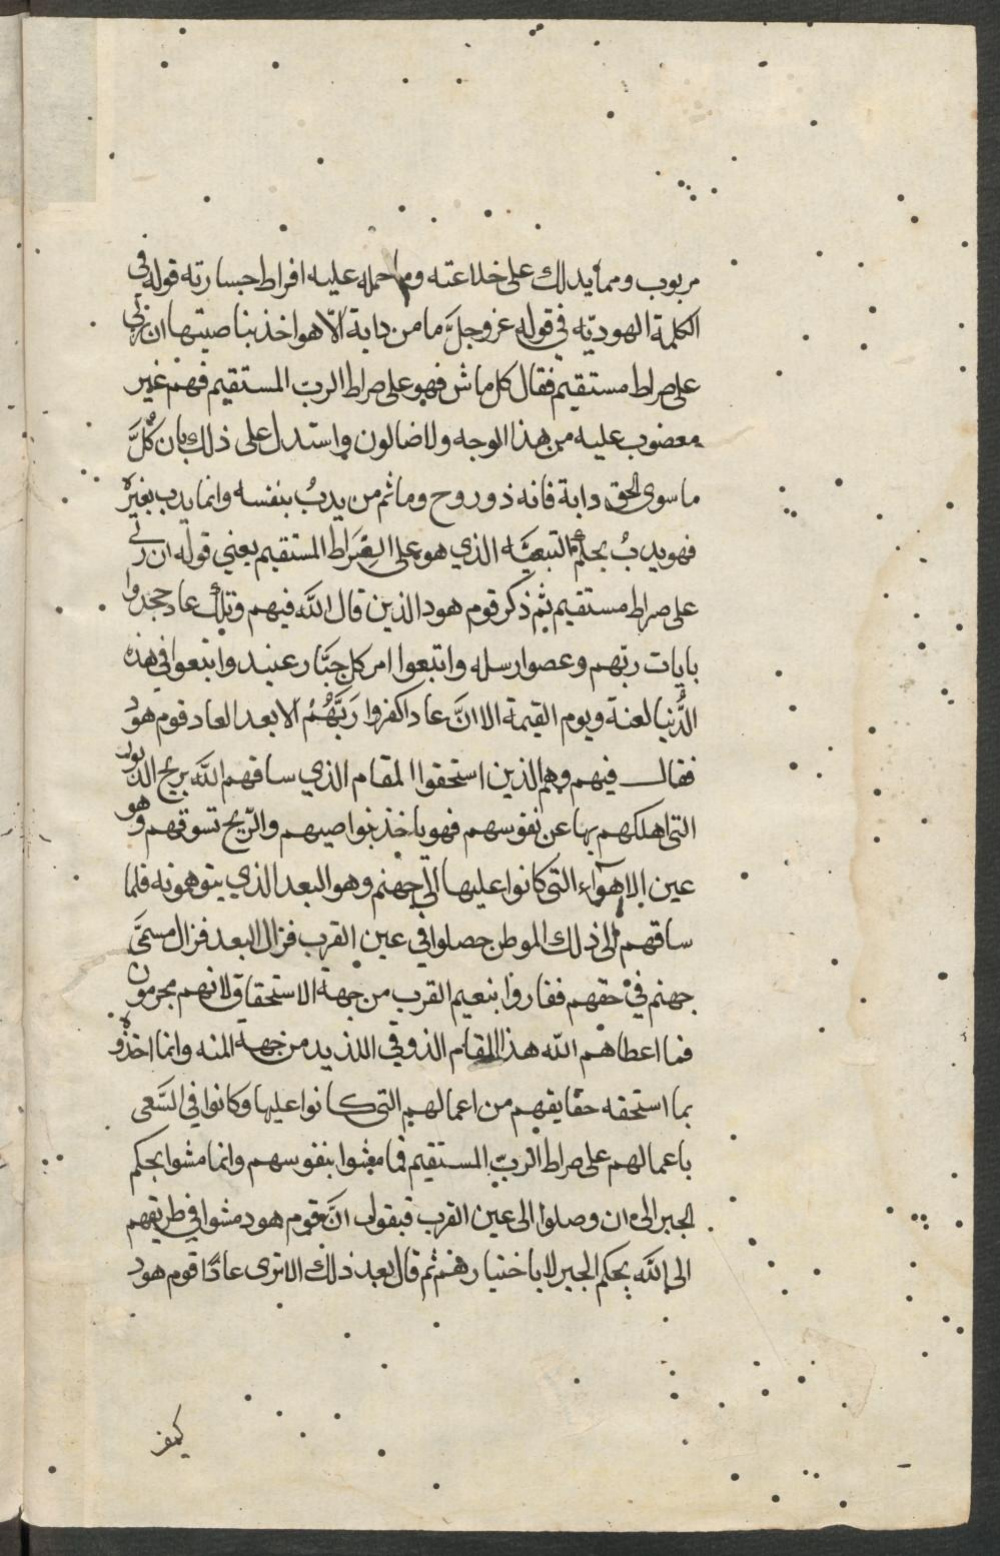 مربوب ومما يدلك على خلاعته وما حمله عليه افراط جسارته قوله في
الكلمة الهوديّه في قوله عزوجلّ ما من دابة الّا هو اخذ بناصيتها ان ربّي
على صراط مستقيم فقال كل ماش فهو على صراط الرب المستقيم فهم غير
مغضوب عليه من هذا الوجه ولا ضالون واستدل على ذلك بان كلَّ
ما سوى الحق دابة فانه ذو روح وما ثم من يدبُ بنفسه وانما يدب بغيره
فهو يدبُ بحكم التبعيّه الذي هو على الصِّرَاط المستقيم يعني قوله ان ربّي
على صراط مستقيم ثم ذكر قوم هود الذين قال الله فيهم وتلك عاد جحدوا
بايات ربهم وعصوا رسله واتبعوا امر كل جبّار عنيد واتبعوا في هذه
الدُّنيا لعنة ويوم القيمة الا انَّ عادا كفروا رَبَّهُمْ الا بعد العاد قوم هود
فقال فيهم وهم الذين استحقوا المقام الذي ساقهم الله بريح الدبور
التي اهلكهم بها عن نفوسهم فهو ياخذ بنواصيهم والرّيح تسوقهم وهو
عين الاهوآء التي كانوا عليها الى جهنم وهو البعد الذي يتوهونه فلما
ساقهم الى ذلك الموطن حصلوا في عين القرب فزال البعد فزال مسمَّى
جهنم في حقهم ففازوا بنعيم القرب من جهة الاستحقاق لانهم مجرمون
فما اعطاهم الله هذا المقام الذوقي اللذيد من جهة المنه وانما اخذوه
بما استحقه حقايقهم من اعمالهم التي كانوا عليها وكانوا في السَّعى
باعمالهم على صراط الربّ المستقيم فما مشوا بنفوسهم وانما مشوا بحكم
الجبر الى ان وصلوا الى عين القرب فيقول انَّ قوم هود مشوا في طريقهم
الى الله بحكم الجبر لا باختيارهم ثم قال بعد ذلك الا ترى عادًا قوم هود
كيف